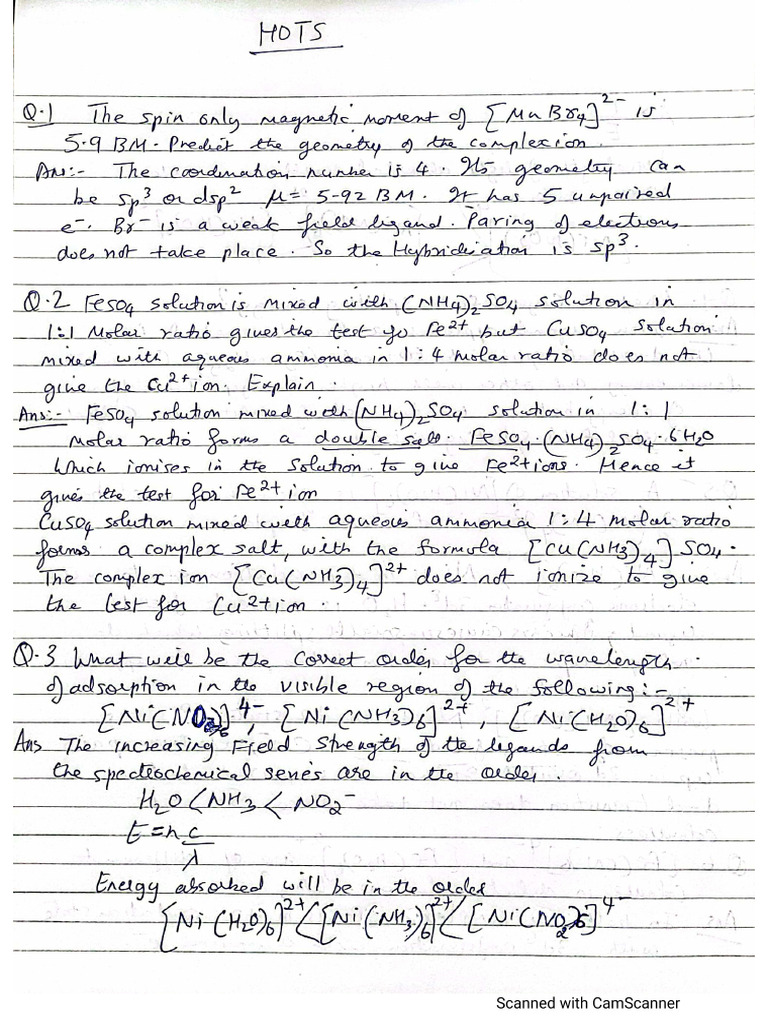 HOTS
Q.1 The spin only magnetic moment of [MnBr4]2- is
5.9 BM. Predict the geometry of the complexion.
Ans:- The coordination number is 4. Its geometry can
be sp3 or dsp2 μ= 5.92 BM. It has 5 unpaired
e-. Br- is a weak field ligand. Paring of electrons
does not take place. So the Hybridisation is sp3.
Q.2 FeSO4 solution is mixed with (NH4)2SO4 solution in
1:1 Molar ratio gives the test go Fe2+ but CuSO4 solution
mixed with aqueous ammonia in 1:4 molar ratio does not
give the Cu2+ ion. Explain.
Ans:- FeSO4 solution mixed with (NH4)2SO4 solution in 1:1
Molar ratio forms a double salt. FeSO4.(NH4)2SO4.6H2O
Which ionises in the solution to give Fe2+ions. Hence it
gives the test for Fe2+ion
CuSO4 solution mixed with aqueous ammonia 1:4 molar ratio
forms a complex salt, with the formula [Cu(NH3)4]SO4.
The complex ion [Cu(NH3)4]2+ does not ionize to give
the test for Cu2+ion.
Q.3 What will be the correct order for the wavelength
of adsorption in the visible region of the following:-
[Ni(NO2)6]4-, [Ni(NH3)6]2+, [Ni(H2O)6]2+
Ans The increasing Field Strength of the ligands from
the spectrochemical series are in the order.
H2O < NH3 < NO2-
E=h c
λ
Energy absorbed will be in the order
[Ni(H2O)6]2+ < [Ni(NH3)6]2+ < [Ni(NO2)6]4-
Scanned with CamScanner